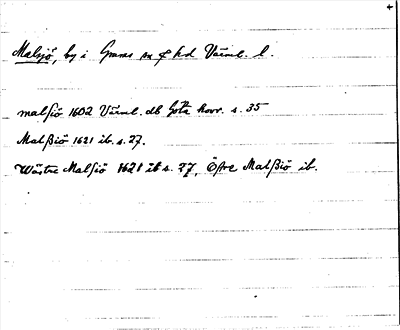 Malsjö, by i Grums sn o hd Värml. l.
malſiö 1602 Värml. db Göta hovr. s. 35
Malſßiö 1621 ib. s. 27.
Wästre Malſiö 1621 ib s. 27, Öſtre Malſßiö ib.